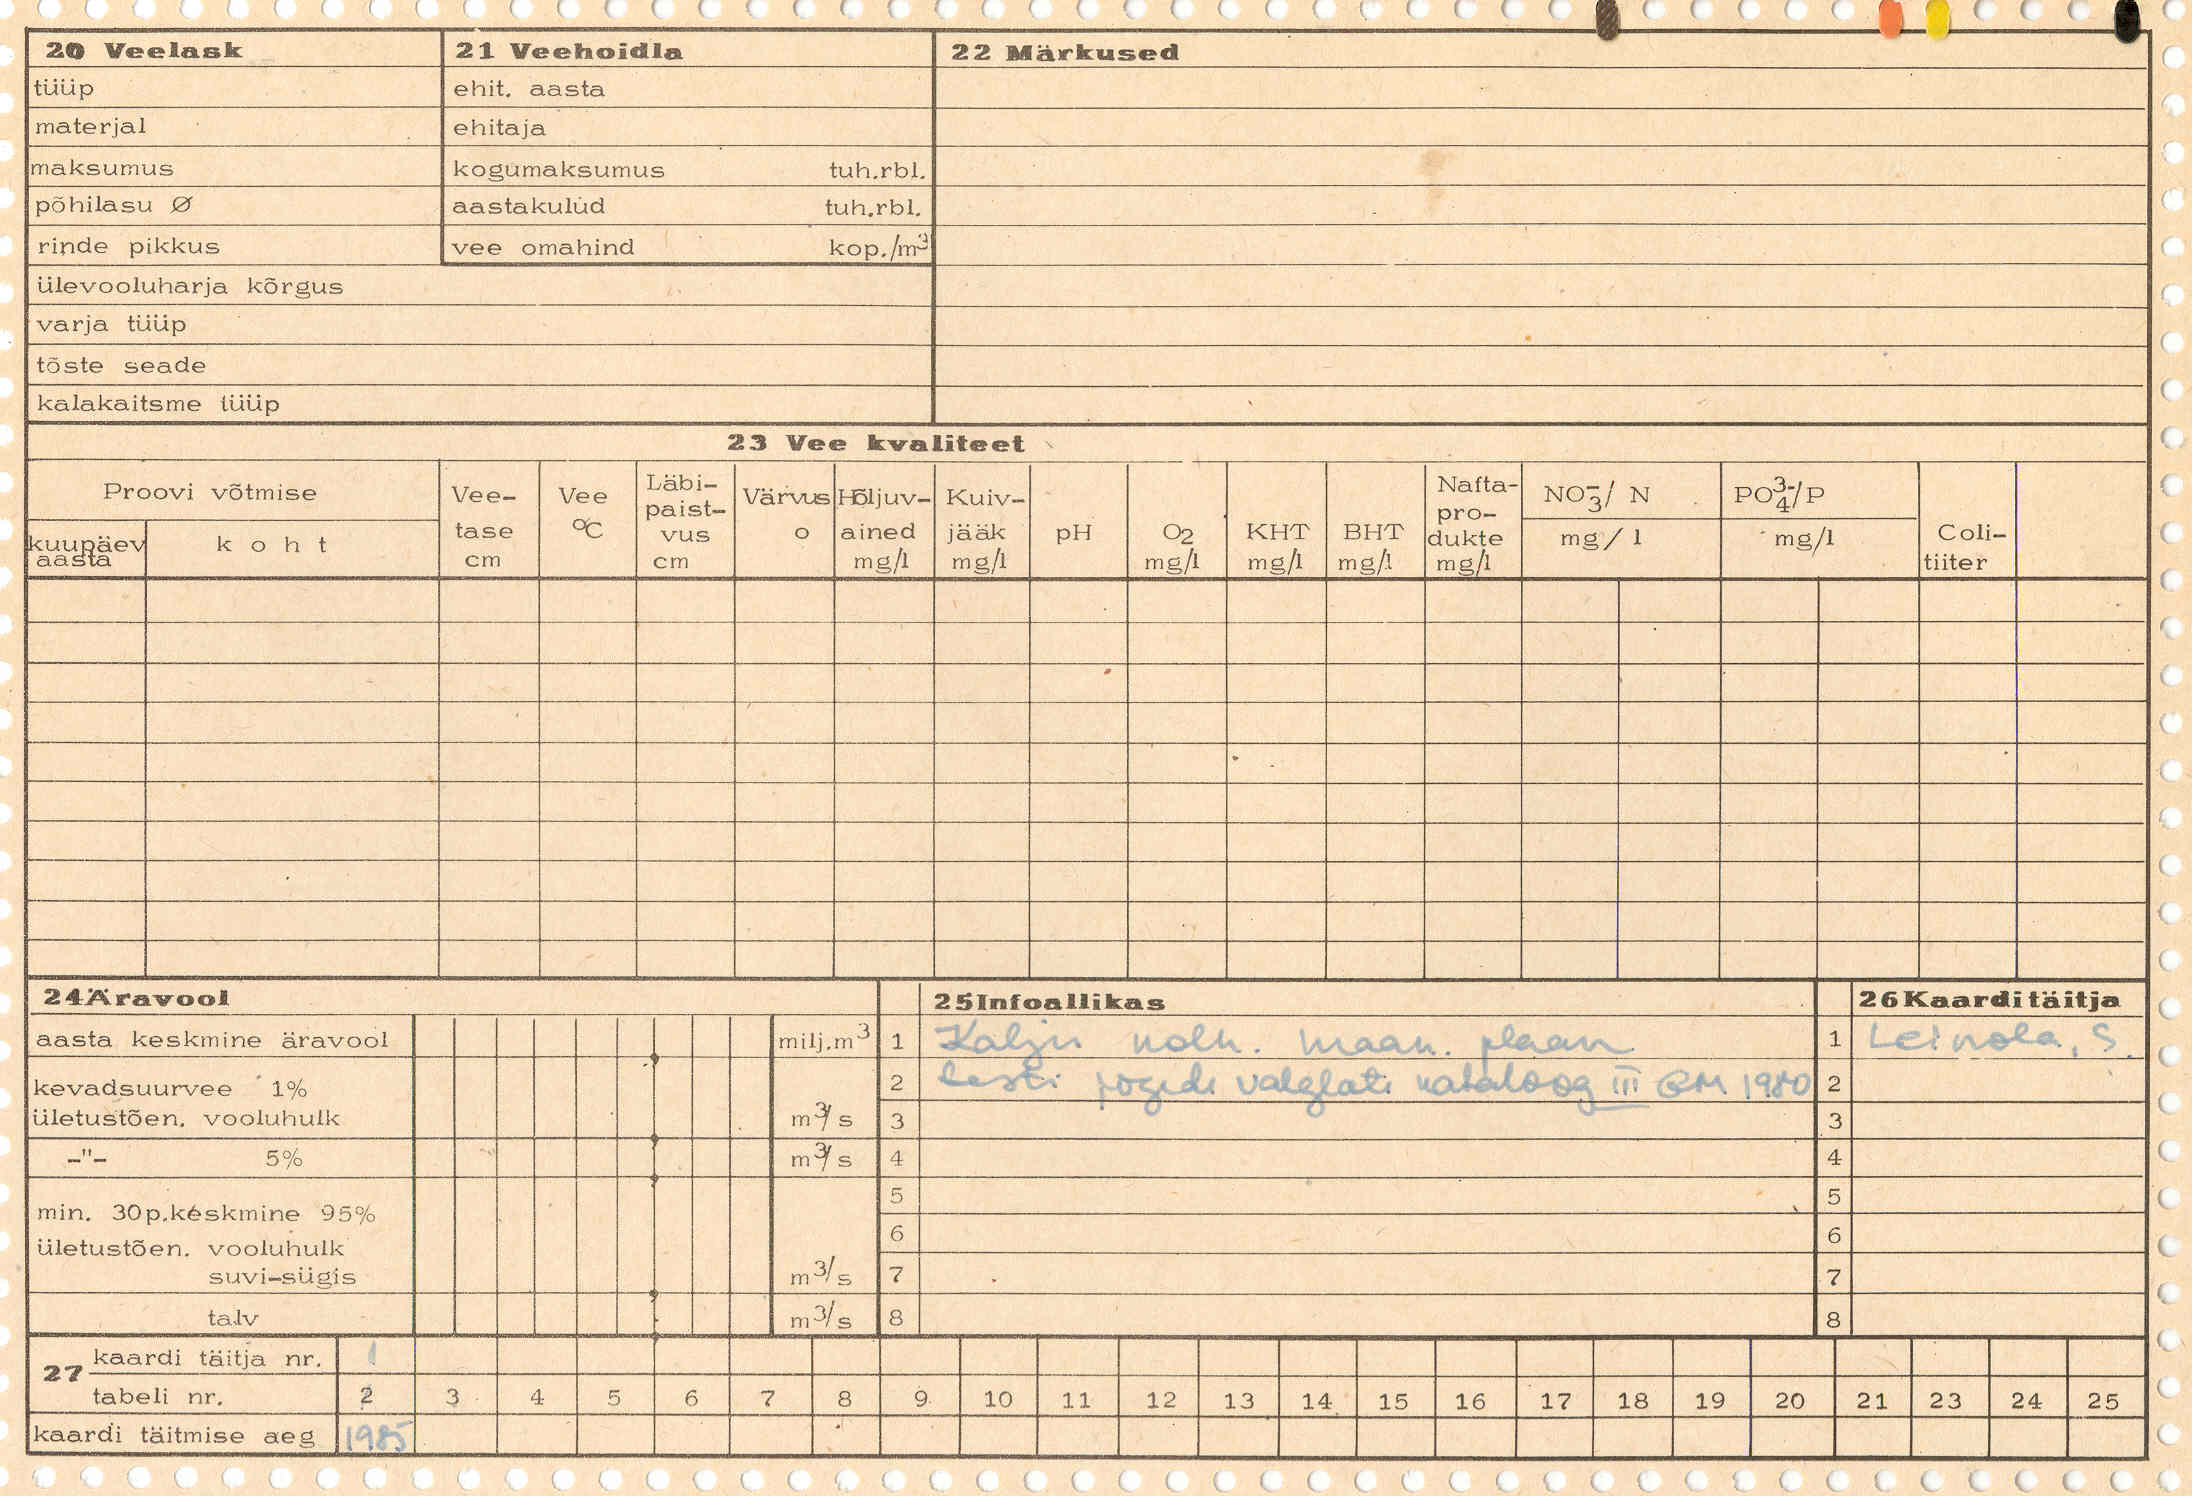 20 Veelask
tüüp
materjal
maksumus
põhilasu Ø
rinde pikkus
ülevooluharja kõrgus
varja tüüp
tõste seade
kalakaitsme tüüp
21 Veehoidla
ehit. aasta
ehitaja
kogumaksumus tuh.rbl.
aastakulud tuh.rbl.
vee omahind kop./m³
22 Märkused
23 Vee kvaliteet
Proovi võtmise
kuupäev
aasta
koht
Vee-
tase
cm
Vee
°C
Läbi-
paist-
vus
cm
Värvus
o
Hõljuv-
ained
mg/l
Kuiv-
jääk
mg/l
pH
O₂
mg/l
KHT
mg/l
BHT
mg/l
Nafta-
pro-
dukte
mg/l
NO₃⁻/ N
mg/l
PO₄³⁻/P
mg/l
Coli-
tiiter
24 Äravool
aasta keskmine äravool milj.m³
kevadsuurvee 1%
ületustõen. vooluhulk m³/s
-"- 5% m³/s
min. 30p.keskmine 95%
ületustõen. vooluhulk
suvi-sügis m³/s
talv m³/s
25 Infoallikas
1 Kalju kolh. maak. plaan
2 Eesti jõgede valglate kataloog III 1980
3
4
5
6
7
8
26 Kaardi täitja
1 Leinola, S.
2
3
4
5
6
7
8
27
kaardi täitja nr. 1
tabeli nr. 2 3 4 5 6 7 8 9 10 11 12 13 14 15 16 17 18 19 20 21 23 24 25
kaardi täitmise aeg 1985